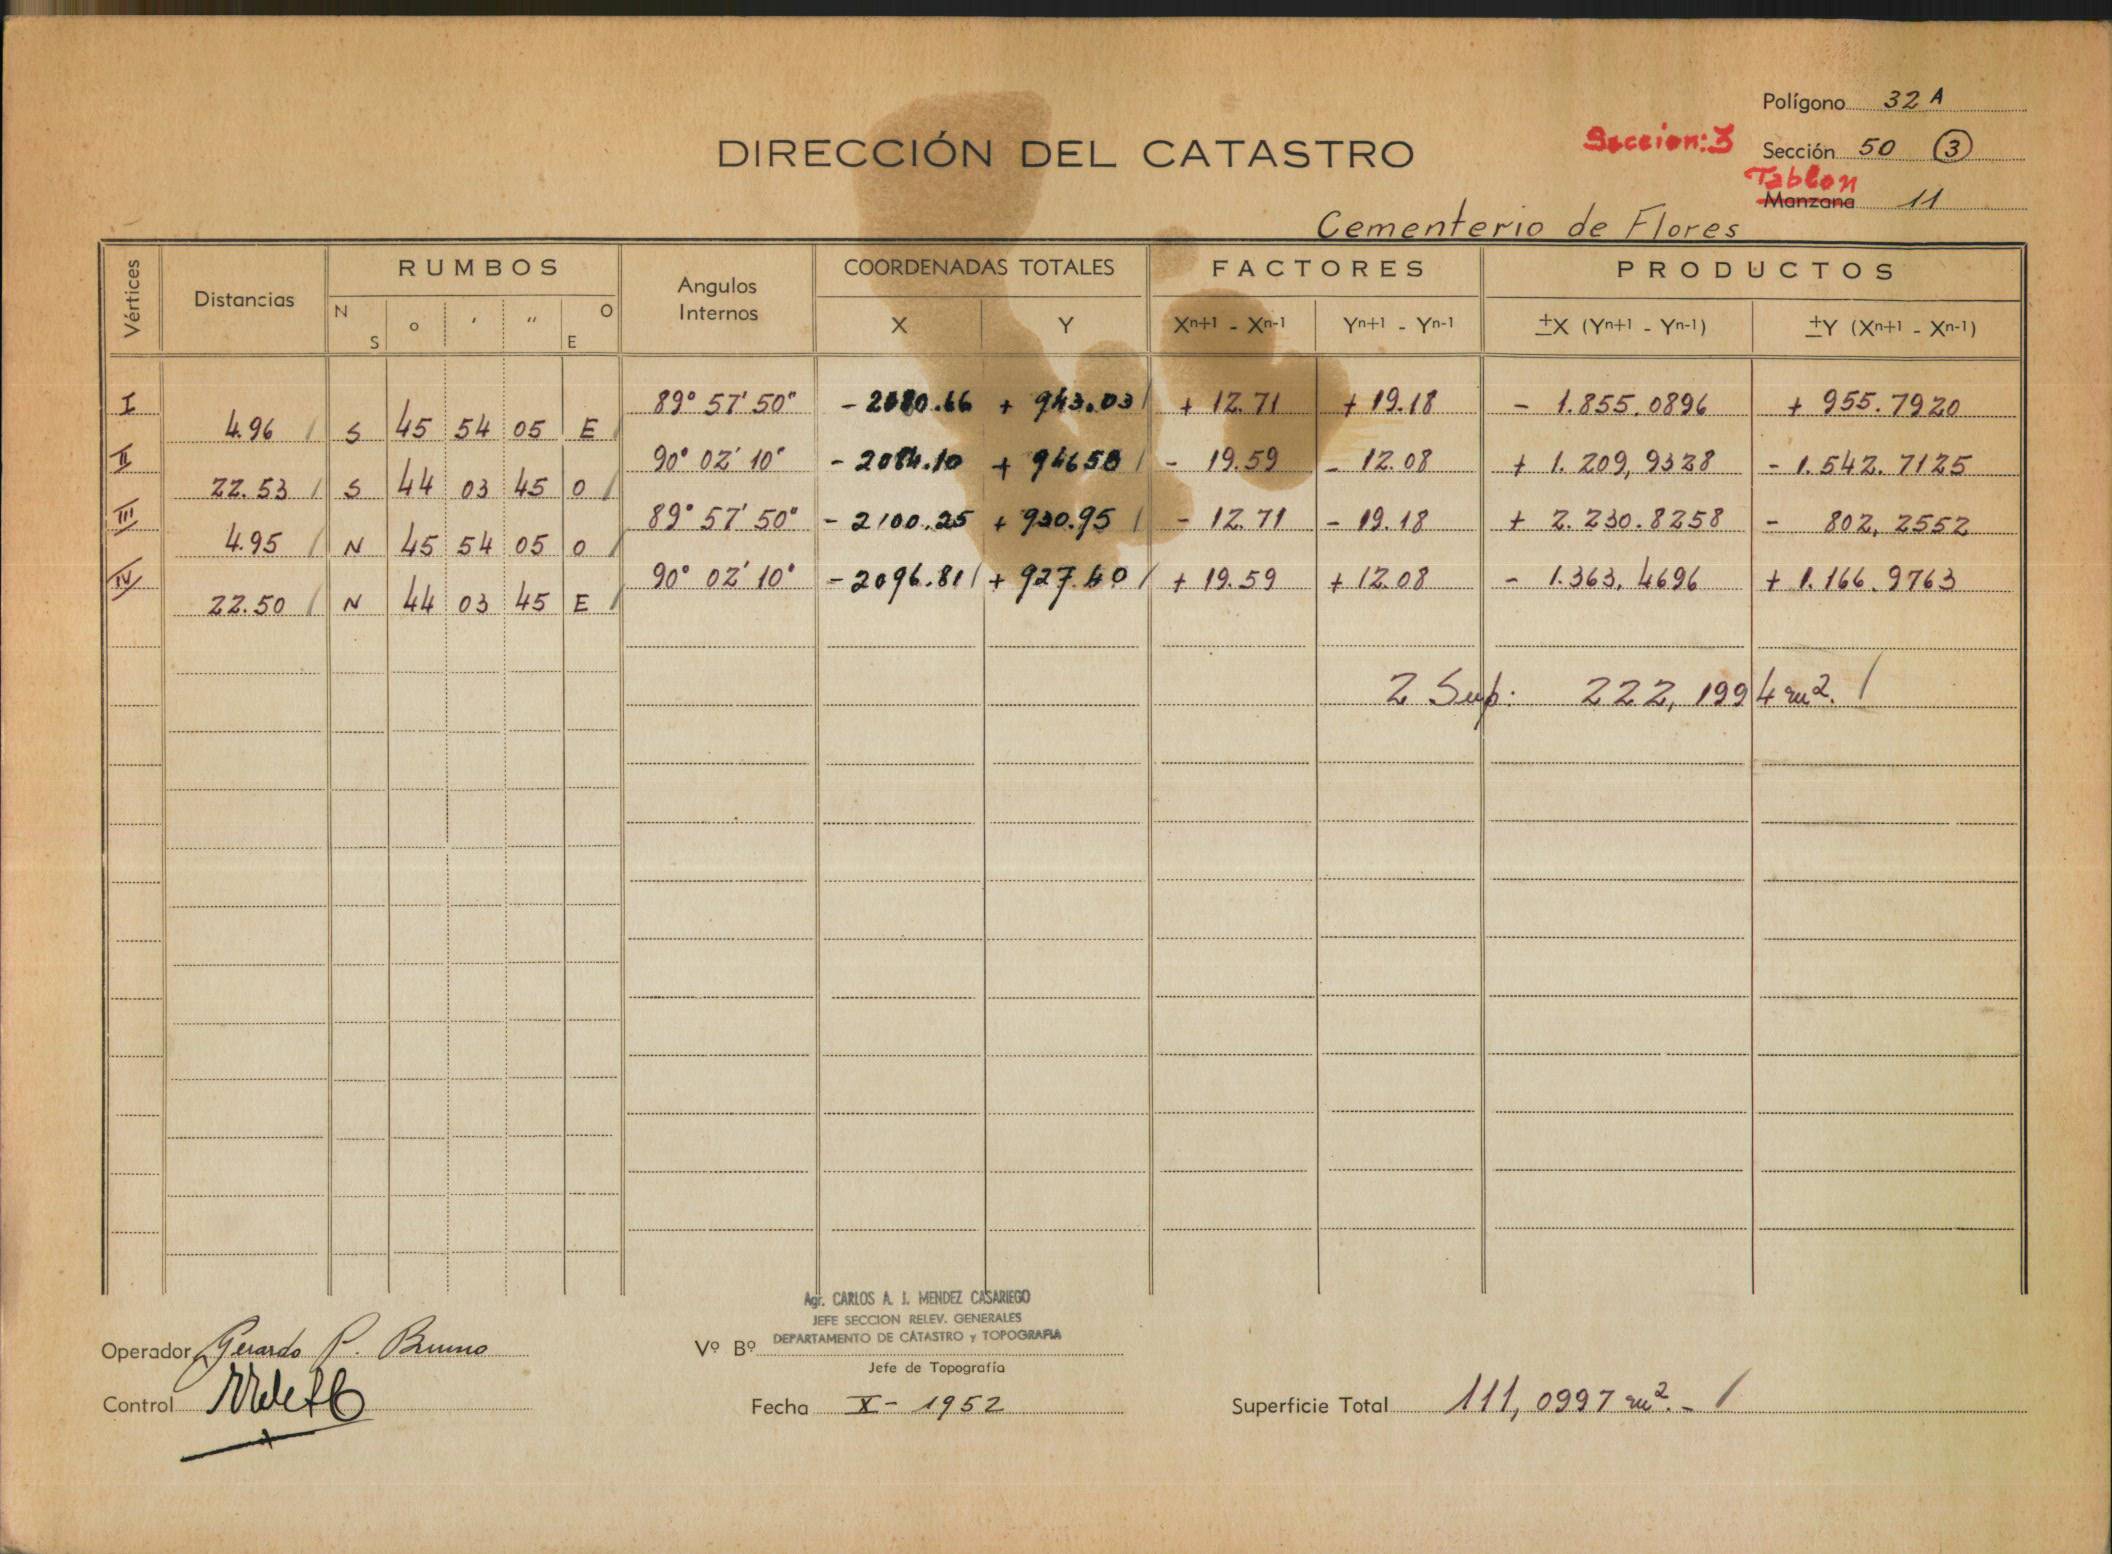 Polígono 32 A
DIRECCIÓN DEL CATASTRO
Seccion: 3
Sección 50 (3)
Tablon
Manzana 11
Cementerio de Flores
Vértices Distancias RUMBOS Angulos Internos COORDENADAS TOTALES FACTORES PRODUCTOS
N S o ' " O E X Y Xn+1 - Xn-1 Yn+1 - Yn-1 ±X (Yn+1 - Yn-1) ±Y (Xn+1 - Xn-1)
I 89° 57' 50" - 2080.66 + 943.03 + 12.71 + 19.18 - 1.855.0896 + 955.7920
4.96 S 45 54 05 E
II 90° 02' 10" - 2084.10 + 946 58 - 19.59 - 12.08 + 1.209,9328 - 1.542.7125
22.53 S 44 03 45 O
III 89° 57' 50" - 2100.25 + 930.95 - 12.71 - 19.18 + 2.230.8258 - 802,2552
4.95 N 45 54 05 O
IV 90° 02' 10" - 2096.81 + 927.40 + 19.59 + 12.08 - 1.363,4696 + 1.166.9763
22.50 N 44 03 45 E
2 Sup: 222,1994 m².
Agr. CARLOS A. J. MENDEZ CASARIEGO
JEFE SECCION RELEV. GENERALES
DEPARTAMENTO DE CATASTRO y TOPOGRAFIA
Operador Gerardo P. Bruno
Vº Bº
Jefe de Topografía
Control
Fecha X - 1952
Superficie Total 111,0997 m². -